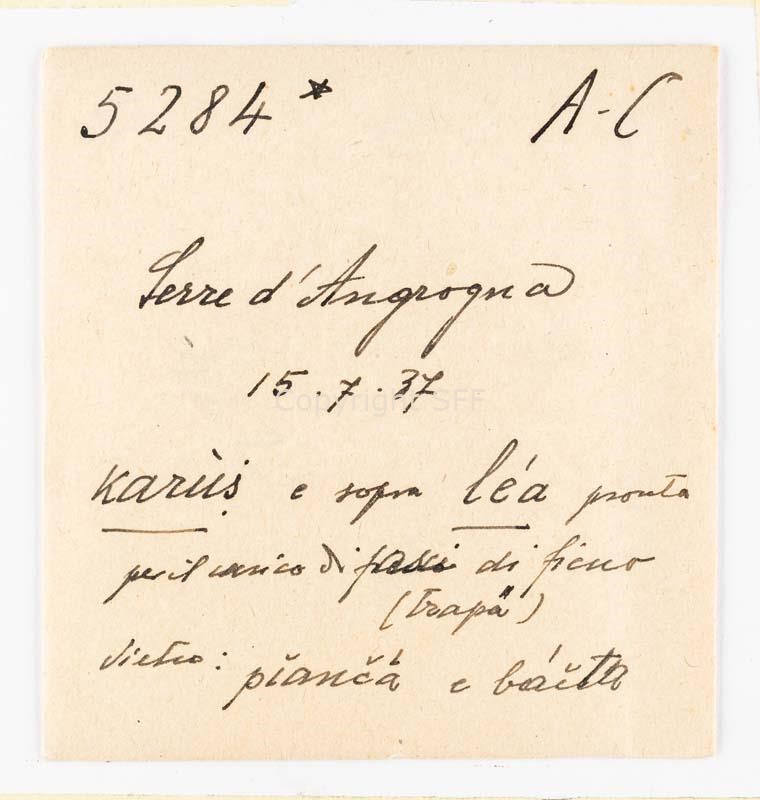 5284* A-C
Serre d'Angrogna
15.7.37
Copyright SFF
karüṣ e sopra léa pronta
per il carico di fassi di fieno
(trapä)
dietro: piančá e báčta